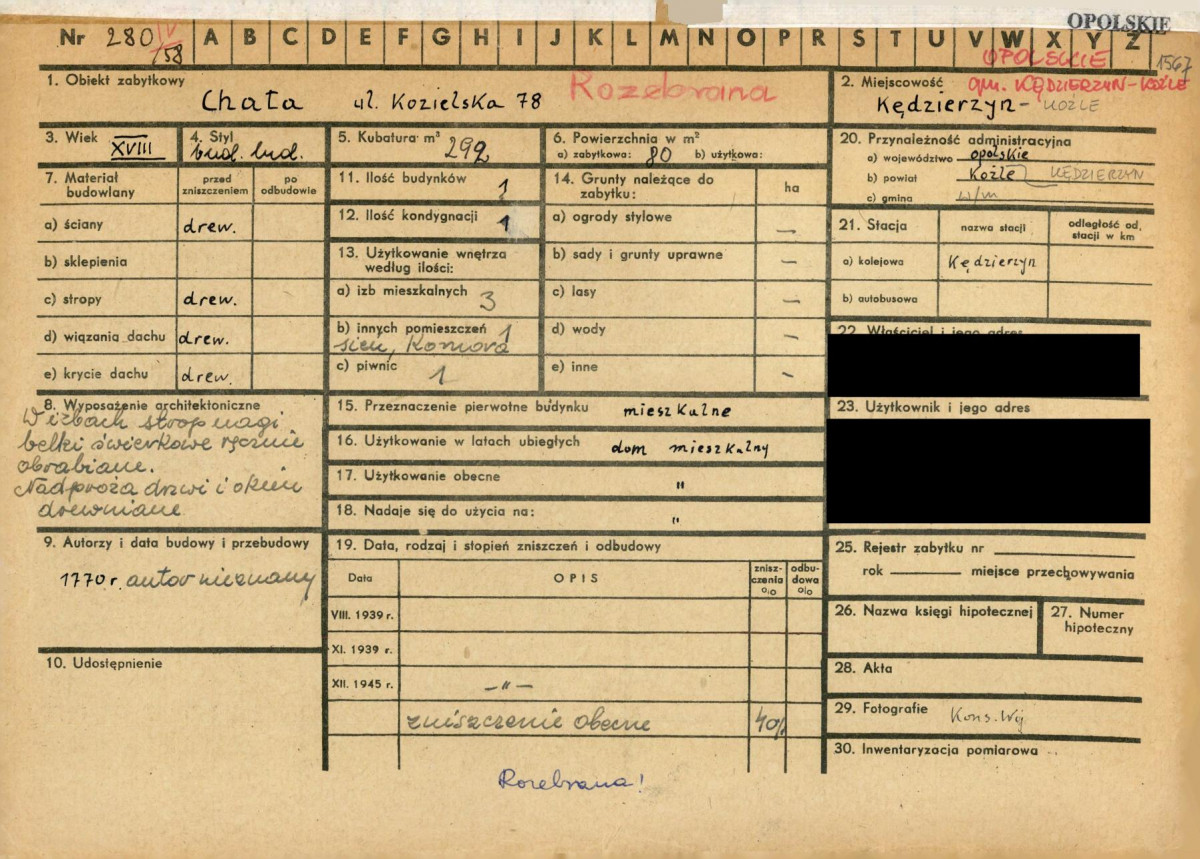 OPOLSKIE
Nr 280 IV/58 A B C D E F G H I J K L M N O P R S T U V W X Y Z
OPOLSKIE 1567
1. Obiekt zabytkowy
Chata ul. Kozielska 78 Rozebrana
2. Miejscowość gm. KĘDZIERZYN-KOŹLE
Kędzierzyn-KOŹLE
3. Wiek XVIII
4. Styl bud. lud.
5. Kubatura m³ 292
6. Powierzchnia w m²
a) zabytkowa: 80 b) użytkowa:
7. Materiał budowlany
przed zniszczeniem
po odbudowie
a) ściany drew.
b) sklepienia
c) stropy drew.
d) wiązania dachu drew.
e) krycie dachu drew.
8. Wyposażenie architektoniczne
W izbach strop nagi
belki świerkowe ręcznie
obrabiane.
Nadproża drzwi i okien
drewniane
9. Autorzy i data budowy i przebudowy
1770 r. autor nieznany
10. Udostępnienie
11. Ilość budynków 1
12. Ilość kondygnacji 1
13. Użytkowanie wnętrza
według ilości:
a) izb mieszkalnych 3
b) innych pomieszczeń 1
sień, Komora
c) piwnic 1
14. Grunty należące do
zabytku:
ha
a) ogrody stylowe —
b) sady i grunty uprawne —
c) lasy —
d) wody —
e) inne —
15. Przeznaczenie pierwotne budynku mieszkalne
16. Użytkowanie w latach ubiegłych dom mieszkalny
17. Użytkowanie obecne "
18. Nadaje się do użycia na: "
19. Data, rodzaj i stopień zniszczeń i odbudowy
Data
OPIS
znisz-
czenia
%
odbu-
dowa
%
VIII. 1939 r.
XI. 1939 r.
XII. 1945 r. —"—
zniszczenie obecne 40%
Rozebrana!
20. Przynależność administracyjna
a) województwo opolskie
b) powiat Koźle KĘDZIERZYN
c) gmina w/m
21. Stacja
nazwa stacji
odległość od
stacji w km
a) kolejowa Kędzierzyn
b) autobusowa
22. Właściciel i jego adres
23. Użytkownik i jego adres
25. Rejestr zabytku nr
rok miejsce przechowywania
26. Nazwa księgi hipotecznej
27. Numer
hipoteczny
28. Akta
29. Fotografie Kons. Woj
30. Inwentaryzacja pomiarowa